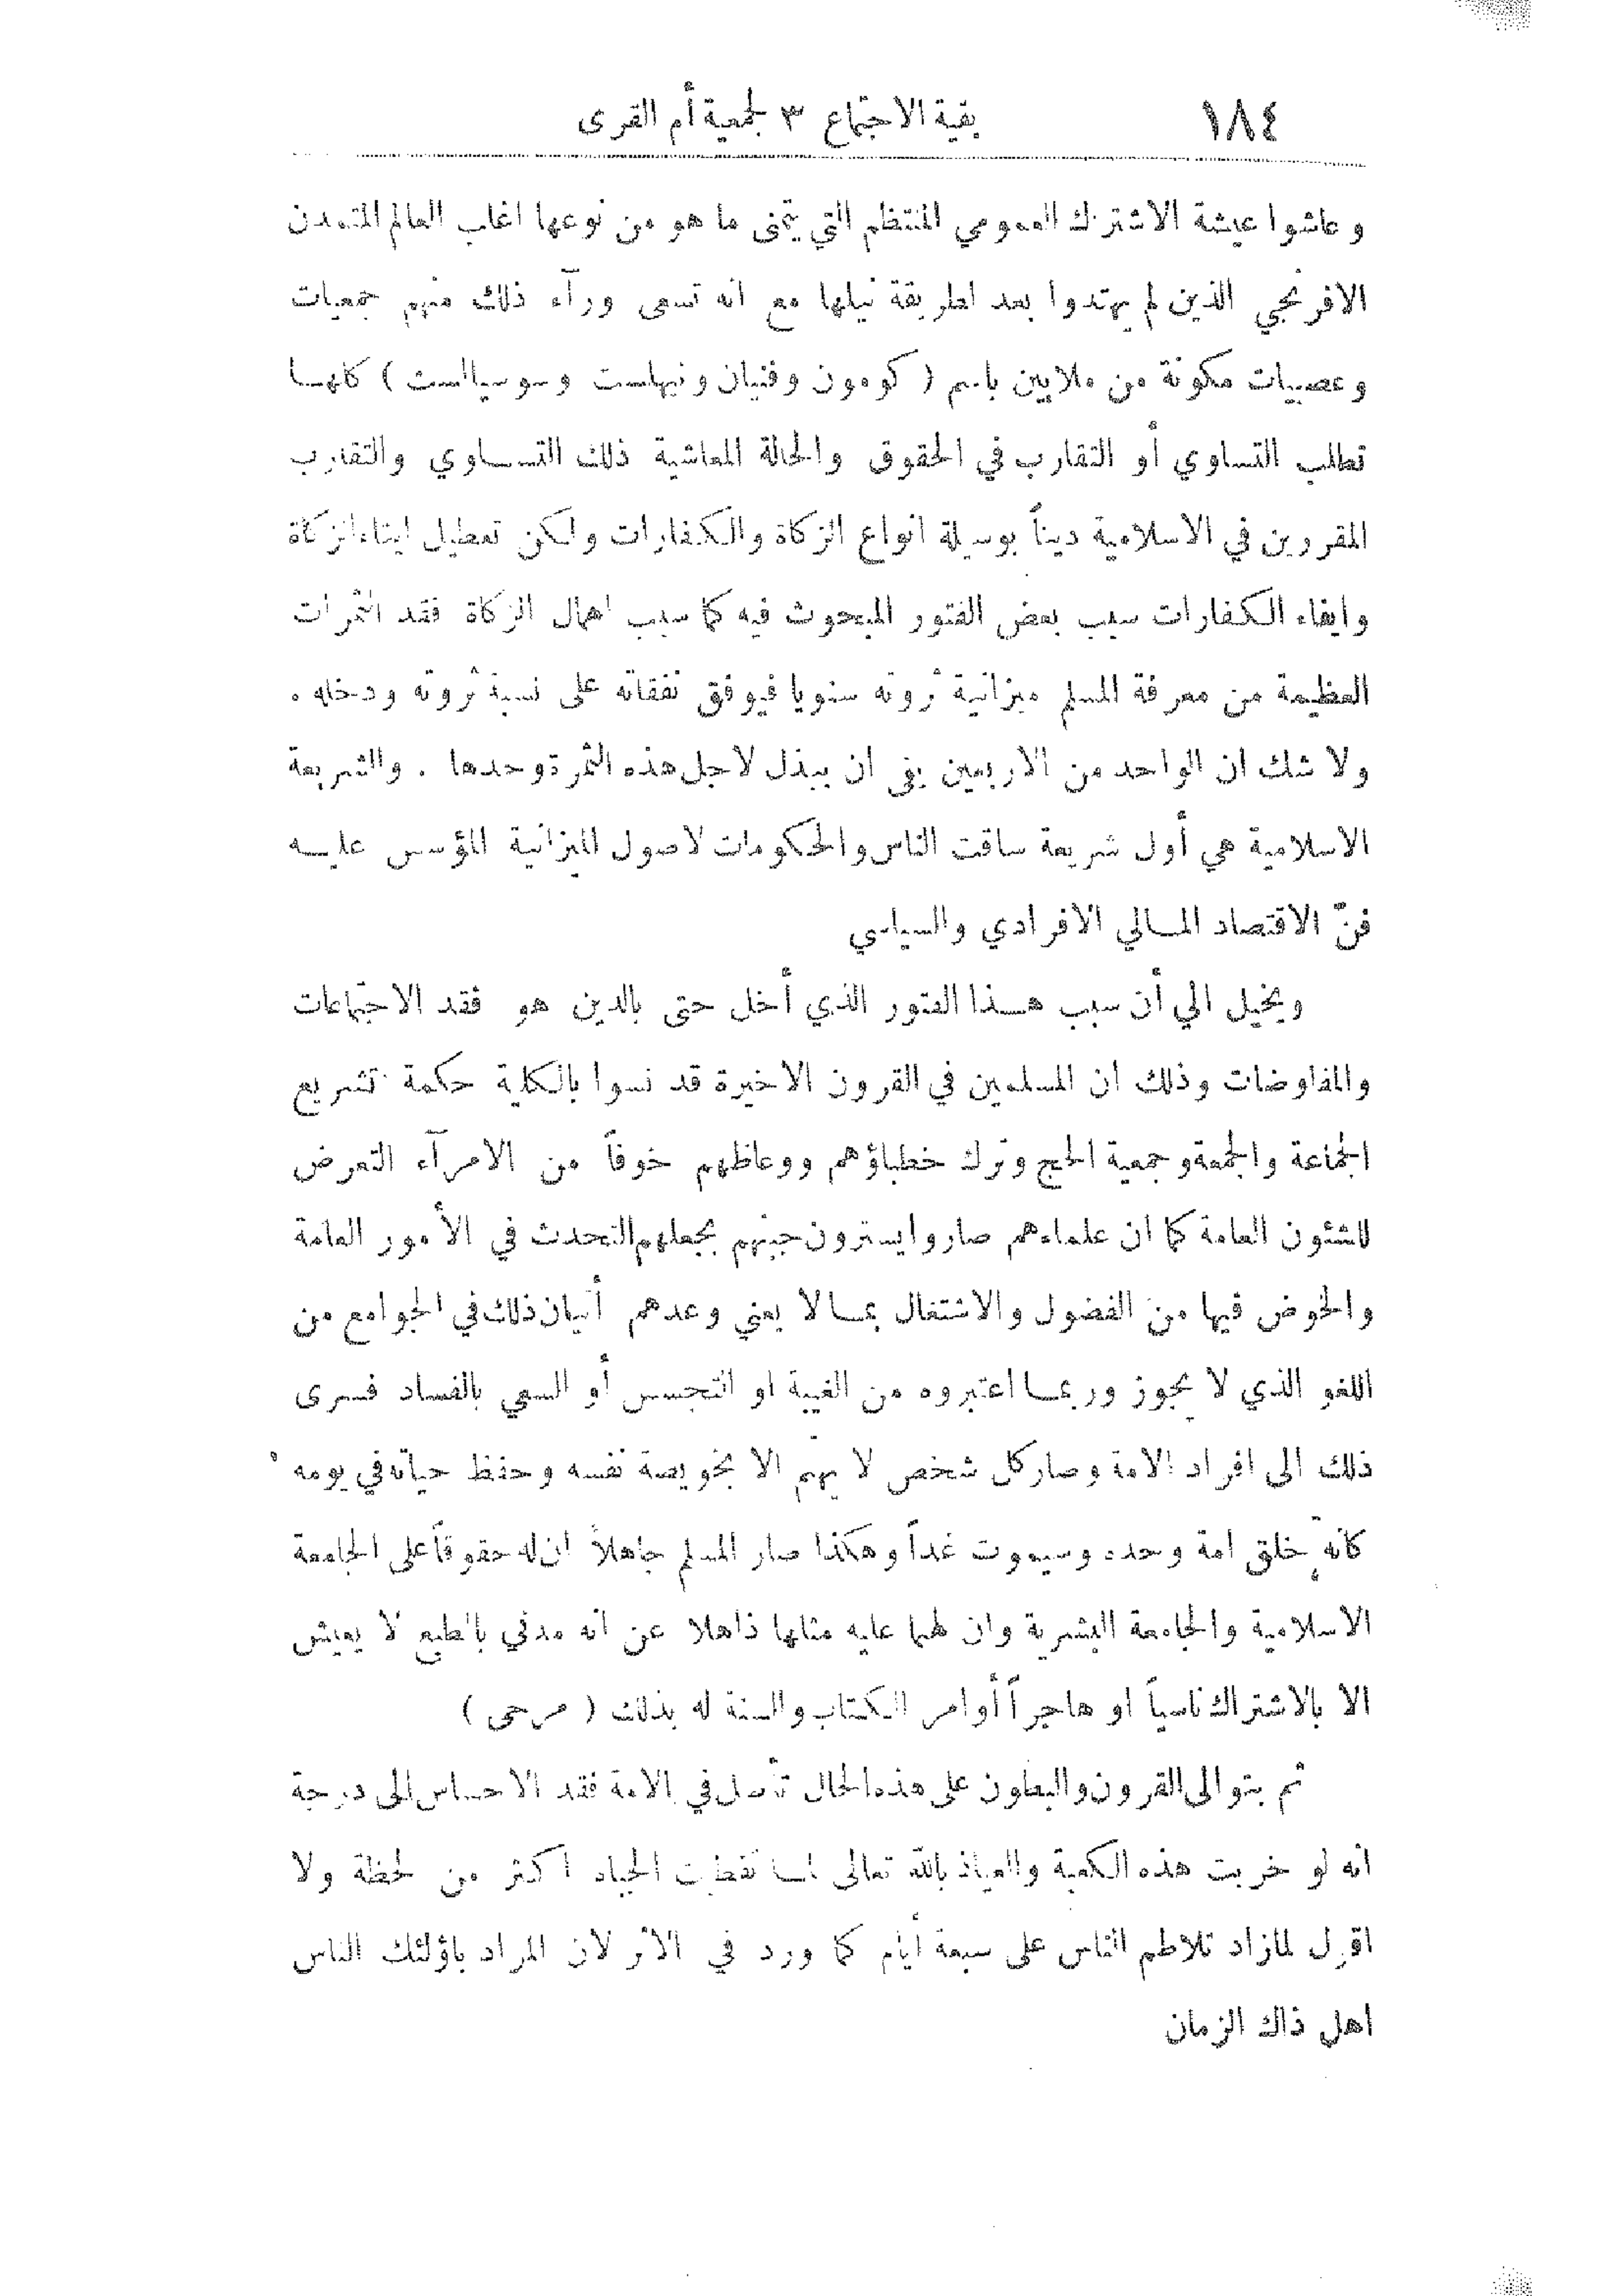 ١٨٤ بقية الاجتماع ٣ لجمعية أم القرى
وعاشوا عيشة الاشتراك العمومي المنتظم التي يتمنى ما هو من نوعها اغلب العالم المتمدن
الافرنجي الذين لم يهتدوا بعد لطريقة نيلها مع انه تسعى ورآء ذلك منهم جمعيات
وعصبيات مكونة من ملايين باسم ( كومون وفنيان ونيهلست وسوسيالست ) كلهـا
تطلب التساوي أو التقارب في الحقوق والحالة المعاشية ذلك التسـاوي والتقارب
المقررين في الاسلامية ديناً بوسيلة انواع الزكاة والكفارات ولكن تعطيل ايتاء الزكاة
وايفاء الكفارات سبب بعض الفتور المبحوث فيه كما سبب اهمال الزكاة فقد الثمرات
العظيمة من معرفة المسلم ميزانية ثروته سنويا فيوفق نفقاته على نسبة ثروته ودخله .
ولا شك ان الواحد من الاربعين يفي ان يبذل لاجل هذه الثمرة وحدها . والشريعة
الاسلامية هي أول شريعة ساقت الناس والحكومات لاصول الميزانية المؤسس عليـه
فنّ الاقتصاد المـالي الافرادي والسياسي
ويخيل الي أن سبب هـذا الفتور الذي أخل حتى بالدين هو فقد الاجتماعات
والمفاوضات وذلك ان المسلمين في القرون الاخيرة قد نسوا بالكلية حكمة تشريع
الجماعة والجمعة وجمعية الحج وترك خطباؤهم ووعاظهم خوفاً من الامرآء التعرض
للشئون العامة كما ان علماءهم صاروا يسترون جبنهم بجعلهم التحدث في الأمور العامة
والخوض فيها من الفضول والاشتغال بمـا لا يعني وعدهم أتيان ذلك في الجوامع من
اللغو الذي لا يجوز وربمـا اعتبروه من الغيبة او التجسس أو السعي بالفساد فسرى
ذلك الى افراد الامة وصار كل شخص لا يهتم الا بخويصة نفسه وحفظ حياته في يومه
كأنه خلق امة وحده وسيموت غداً وهكذا صار المسلم جاهلاً ان له حقوقاً على الجامعة
الاسلامية والجامعة البشرية وان لهما عليه مثلها ذاهلا عن انه مدني بالطبع لا يعيش
الا بالاشتراك ناسياً او هاجراً أوامر الكتاب والسنة له بذلك ( مرحى )
ثم بتوالى القرون والبطون على هذه الحال تأصل في الامة فقد الاحساس الى درجة
انه لو خربت هذه الكعبة والعياذ بالله تعالى لمـا تقطبت الجباه اكثر من لحظة ولا
اقول لمازاد تلاطم الناس على سبعة أيام كما ورد في الاثر لان المراد باؤلئك الناس
اهل ذاك الزمان